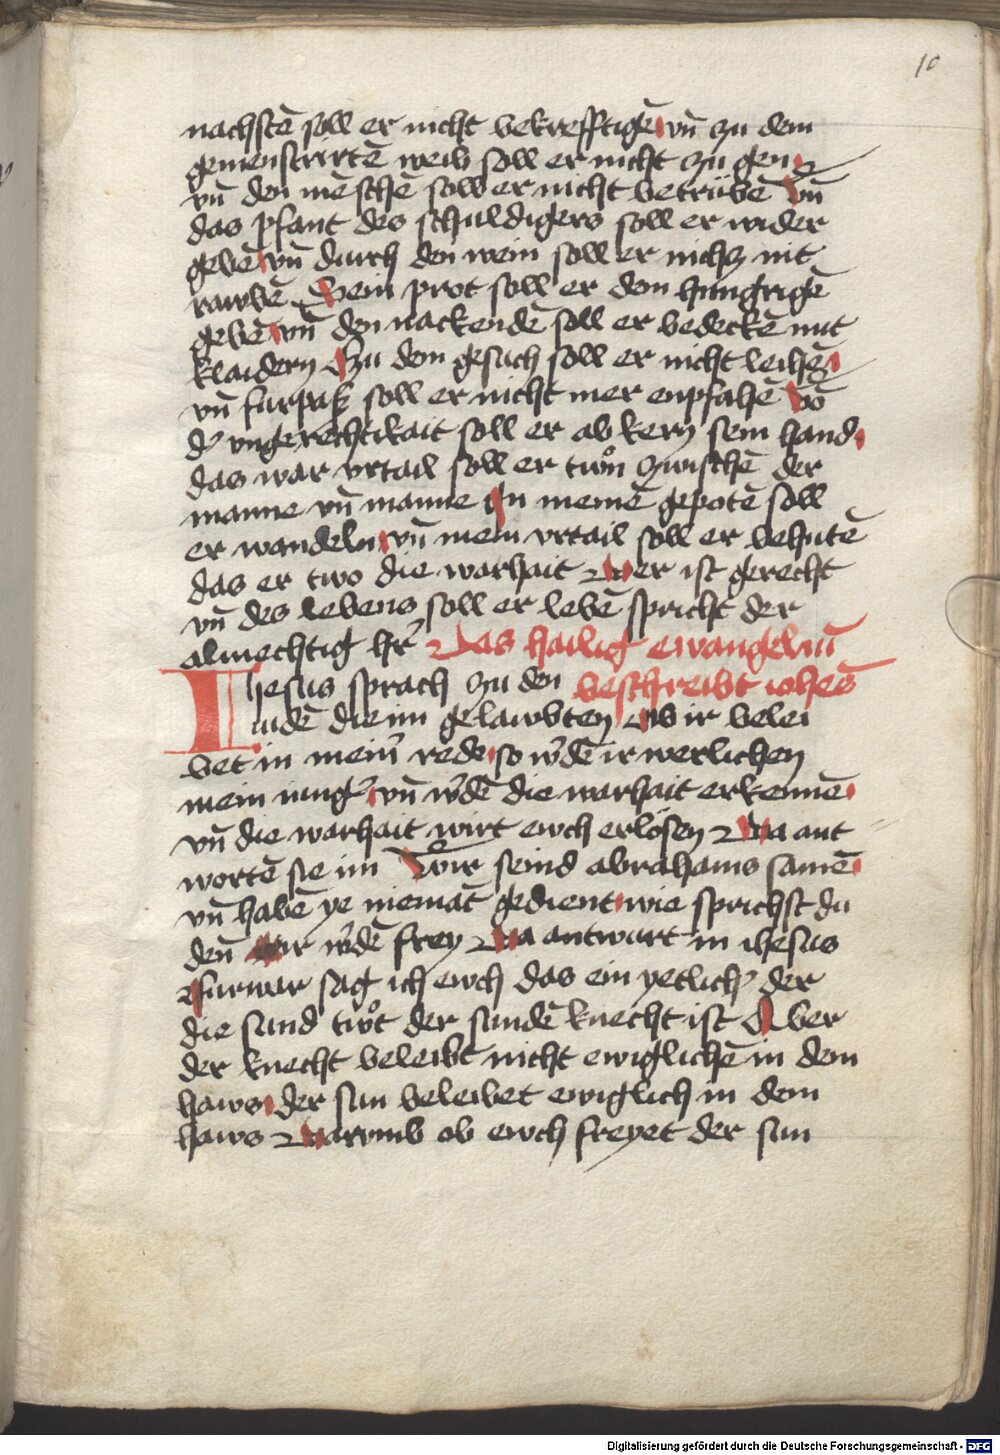 10
nachstē soll er nicht bekrefftigē vn̄ zu dem
gemenstrirtē weib soll er nicht zu gen
vn̄ den mēschē soll er nicht betrübē Vn̄
das pfant des schuldigers soll er wider
gebē vn̄ durch den wein soll er nichtz nit
rawbē Sein prot soll er dem hungrigē
gebē vn̄ den nackendē soll er bedeckē mit
klaidern Zu dem gesuch soll er nicht leihē
vn̄ furpas soll er nicht mer enpfahē Vō
d' vngerechtikait soll er ab kern sein hand
das war vrtail soll er twon zwischē der
manne vn̄ manne In meinē gepotē soll
er wandeln vn̄ mein vrtail soll er behutē
das er two die warhait Der ist gerecht
vn̄ des lebens soll er lebē spricht der
almechtig hr̄ Das hailig ewangeliū
Ihesus sprach zu den beschreibt iohēs
iudē die im gelawbten Ob ir belei
bet in mein' rede so w'dē ir werlichen
mein iung' vn̄ w'dē die warhait erkennē
vn̄ die warhait wirt ewch erlosen Da ant
wortē sie im Wir seind abrahams samē
vn̄ habē ye niemāt gedient wie sprichst du
den̄ ir w'dē frey Da antwurt in ihesus
Furwar sag ich ewch das ein yetlich' der
die sund twot der sundē knecht ist Aber
der knecht beleibt nicht ewiglichē in dem
haws der sun beleibet ewiglich in dem
haws Darvmb ob ewch freyet der sun
Digitalisierung gefördert durch die Deutsche Forschungsgemeinschaft - DFG